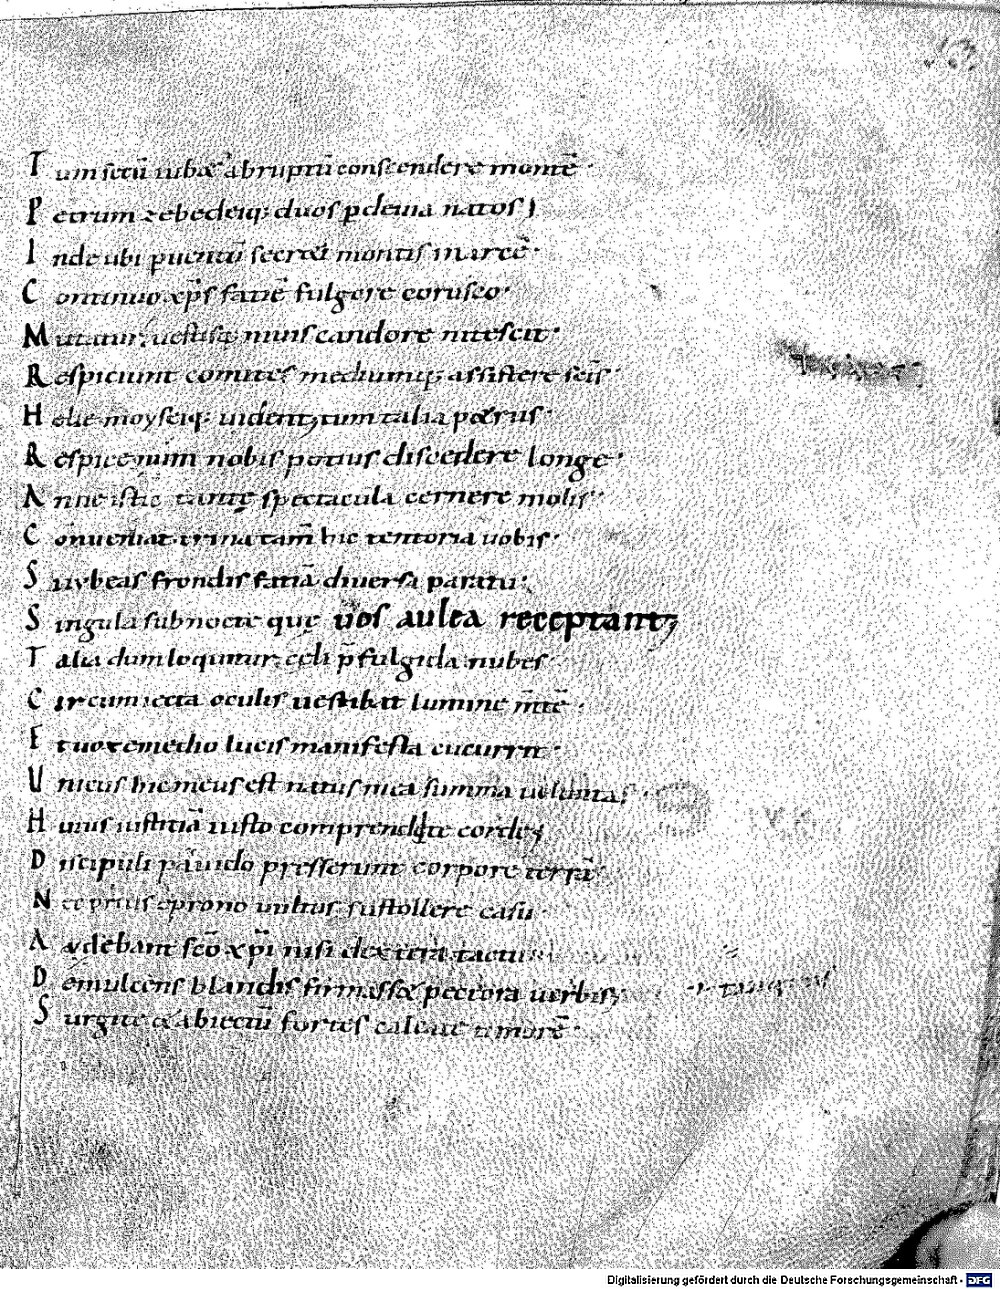 Tum secū iubet abruptū conscendere montē ·
Petrum zebedeiq; duos p devia natos ;
Inde ubi puentū secreti montis in arcē ·
Continuo xp̄s faciē fulgore corusco ·
Mutatur; uestisq; niuis candore nitescit ·
Respiciunt comites mediumq; assistere sc̄is ·
Helie moyseiq; uident; tum talia petrus ·
Respice num nobis potius discedere longe ·
Anne istic tantę spectacula cernere molis ·
Conueniat trina tam̄ hic tentoria uobis ·
Si iubeas frondis faciā diuersa paratu ;
Singula sub nocte quę uos aulea receptant ;
Talia dum loquitur; cęli p̄fulgida nubes ·
Circumiecta oculis uestibat lumine m̄tē ·
Et uox e medio lucis manifesta cucurrit ·
Unicus hic meus est natus mea summa uoluntas ·
Huius iustitiā iusto comprendite corde ;
Discipuli pauido presserunt corpore terrā
Nec prius e prono uultus sustollere casu ·
Audebant sc̄o xp̄i nisi dextera tactu
Demulcens blandis firmasset pectora uerbis ;
Surgite et abiectū fortes calcate timorē ·
Digitalisierung gefördert durch die Deutsche Forschungsgemeinschaft - DFG